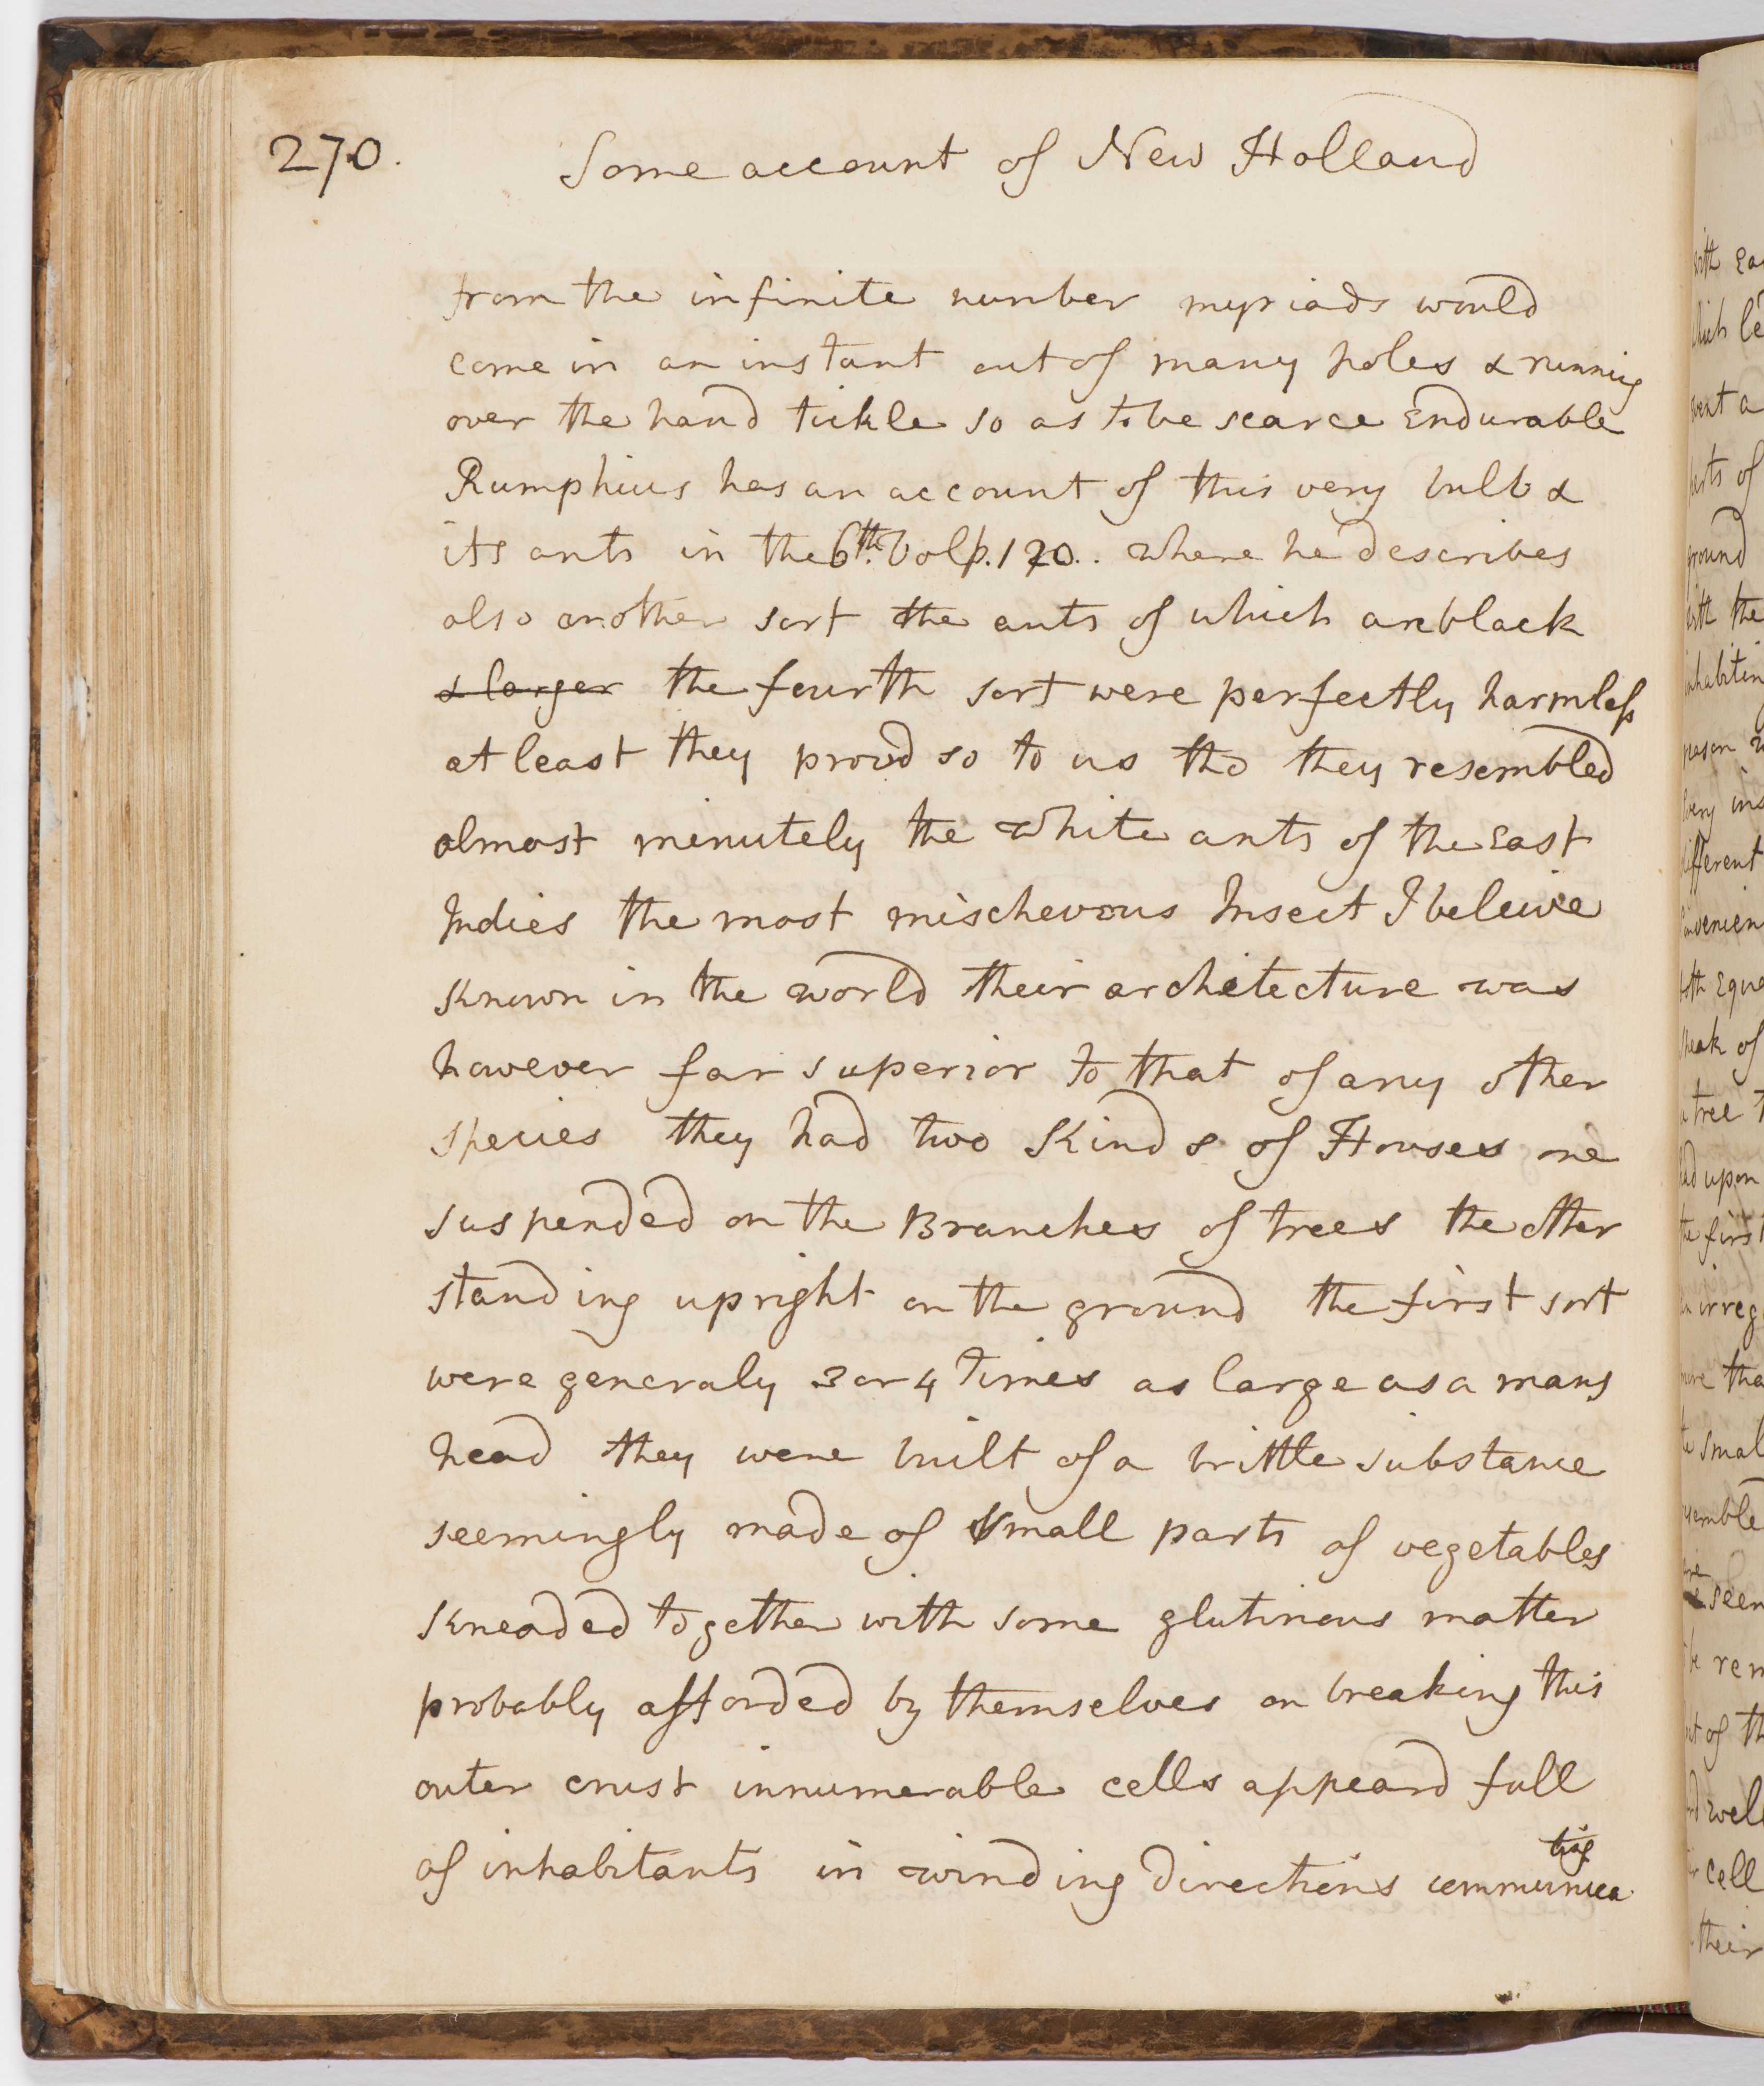 270.
Some account of New Holland
from the infinite number myriads would
come in an instant out of many holes & running
over the hand tickle so as to be scarce Endurable
Rumphius has an account of this very bulb &
its ants in the 6th. Vol p. 120.. where he describes
also another sort the ants of which are black
& larger the fourth sort were perfectly harmless
at least they provd so to us tho they resembled
almost minutely the white ants of the East
Indies the most mischevous Insect I beleive
Known in the world their architecture was
however far superior to that of any other
species they had two Kinds of Houses one
suspended on the Branches of trees the other
standing upright on the ground the first sort
were generaly 3 or 4 times as large as a mans
head they were built of a brittle substance
seemingly made of small parts of vegetables
Kneaded together with some glutinous matter
probably afforded by themselves on breaking this
outer crust innumerable cells appeard full
of inhabitants in winding directions communica
ting